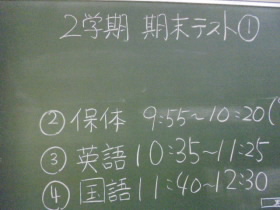 2学期 期末テスト①
②保体 9:55~10:20(
③英語 10:35~11:25
④国語 11:40~12:30